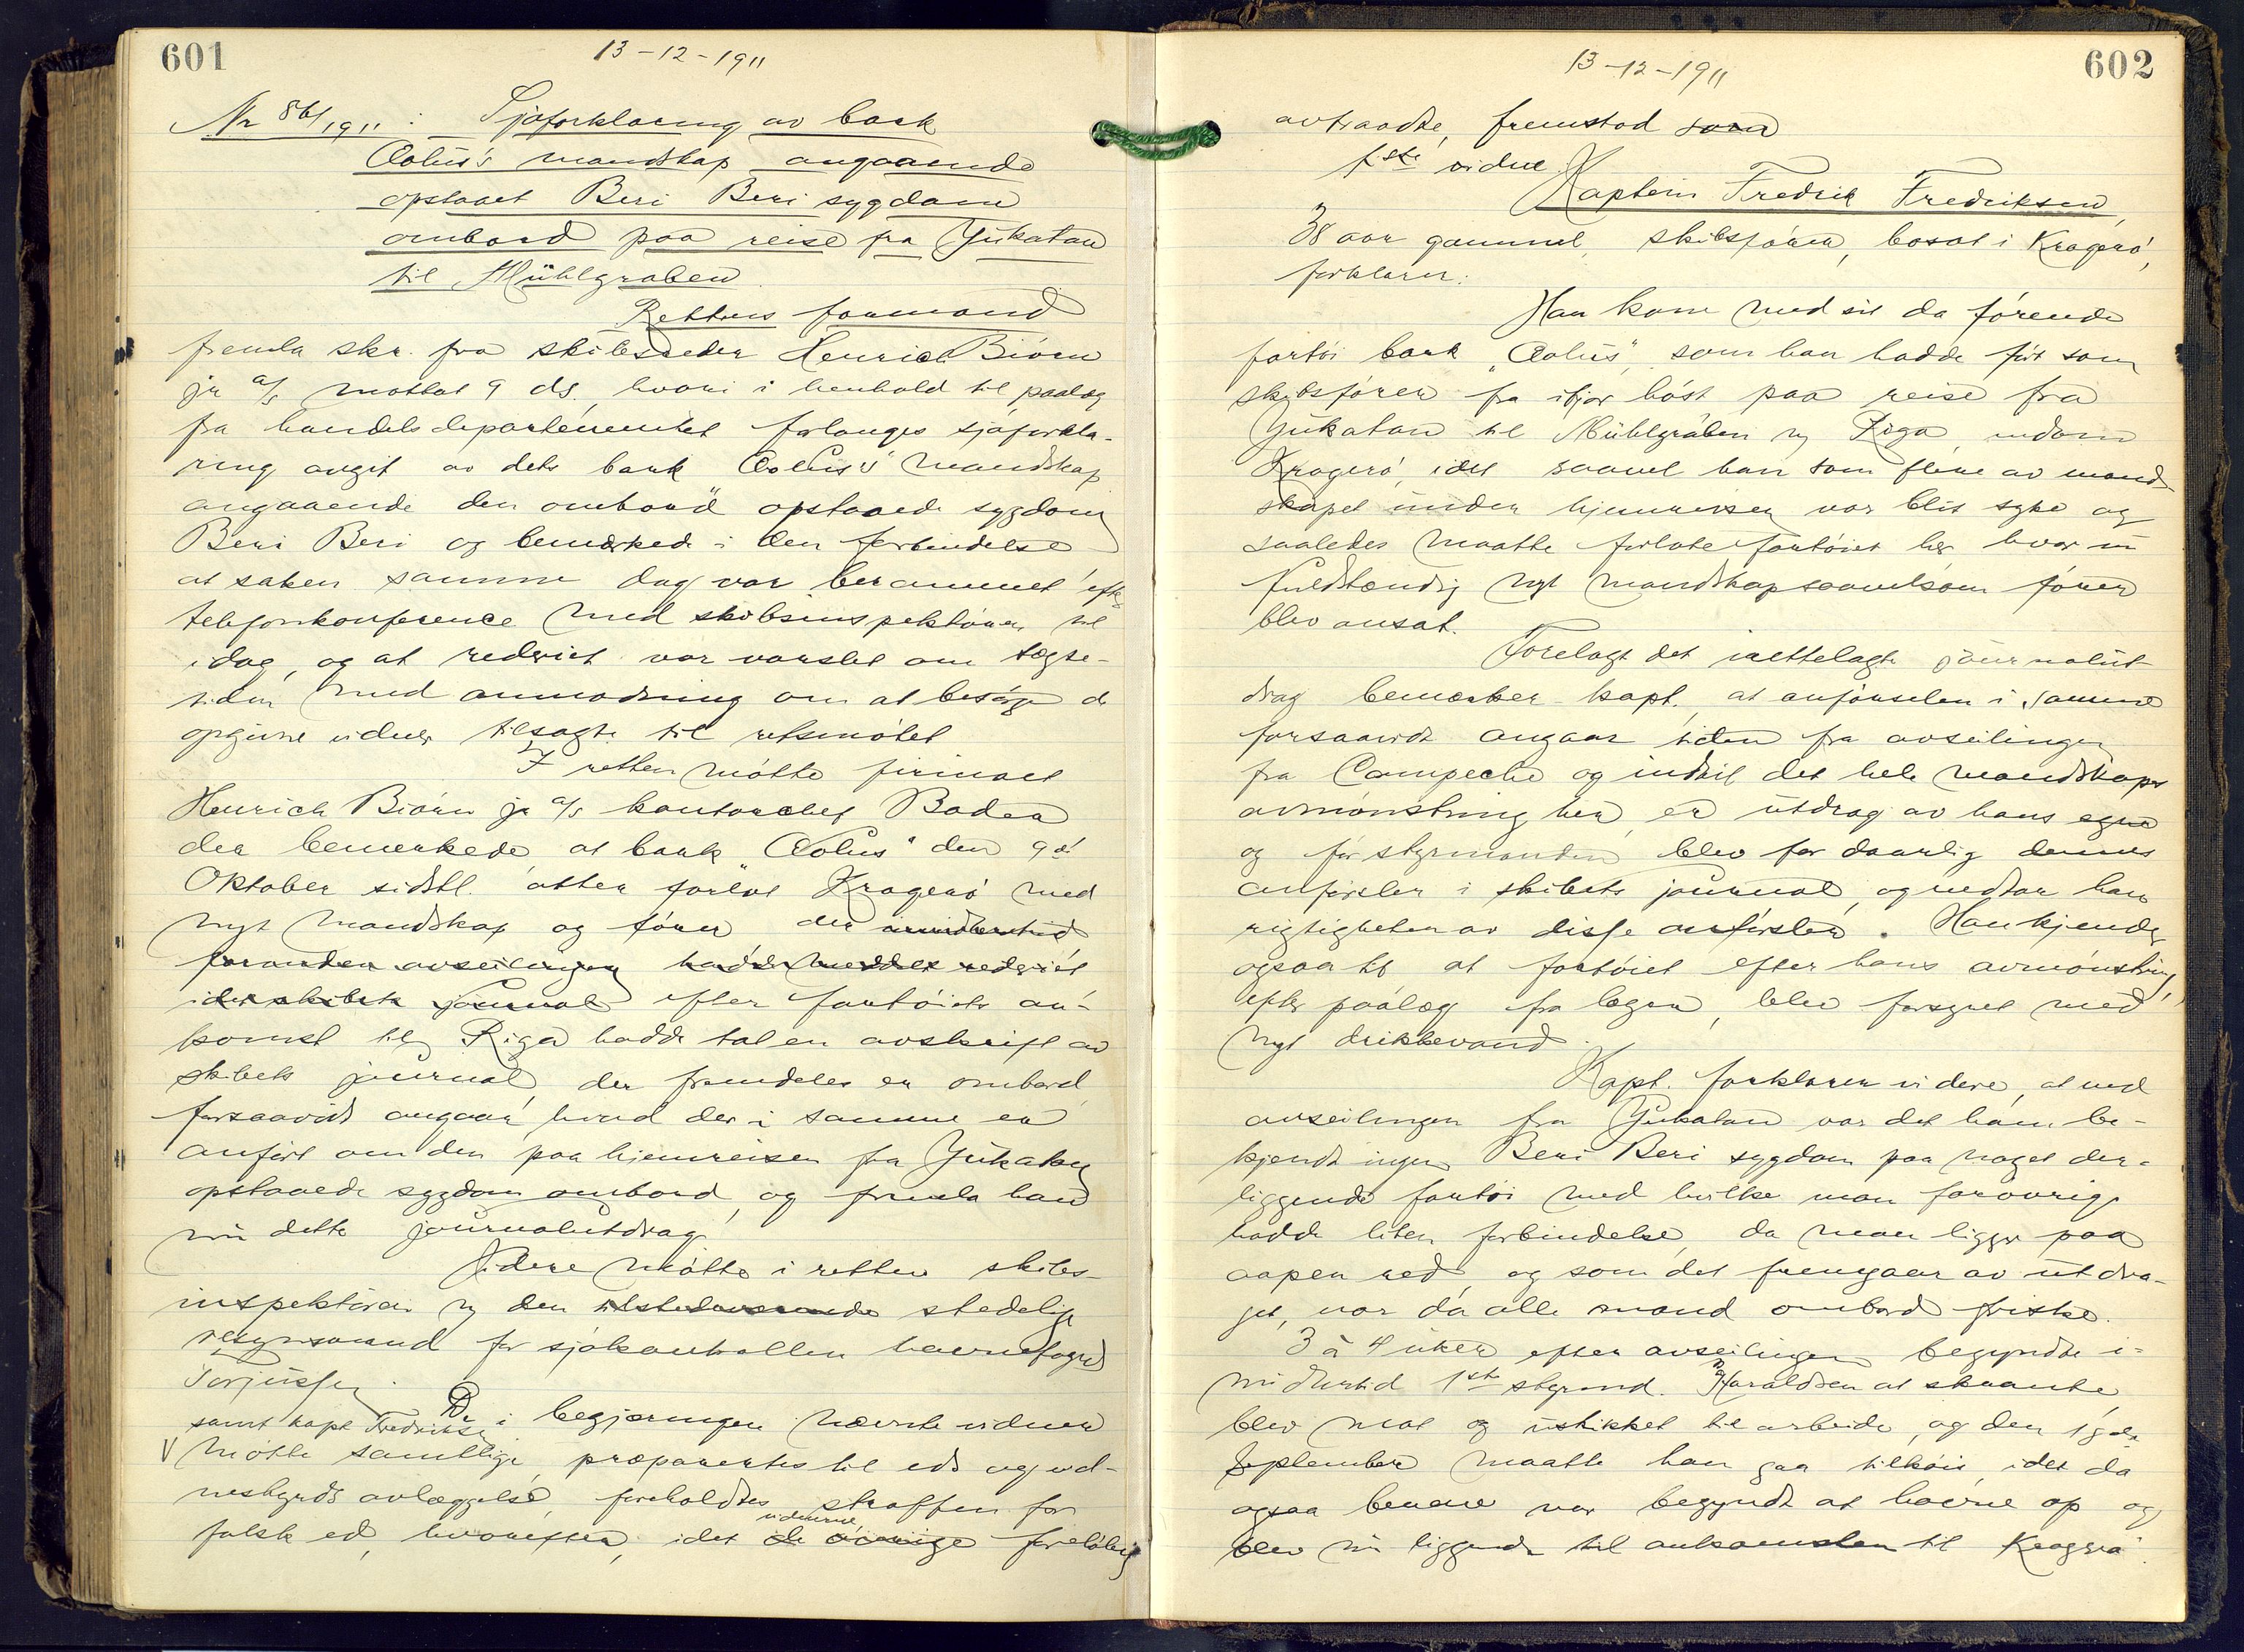 601
13-12-1911
Nr 86/1911: Sjøforklaring av bark
Æolus's mandskap angaaende
opstaaet Beri Beri sygdom
ombord paa reise fra Yukatan
til Mühlgraben.
Rettens formand
fremla skr. fra skibsreder Henrich Biørn
jr a/s mottat 9 ds., hvori i henhold til paalæg
fra handelsdepartementet forlanges sjøforkla-
ring avgit av dets bark "Æolus's" mandskap
angaaende den ombord opstaaede sygdom
Beri Beri og bemerkede i den forbindelse
at saken samme dag var berammet efter
telefonkonference med skibsinspektøren til
idag, og at rederiet var varslet om tægte-
tiden med anmodning om at besørge de
opgivne vidner tilsagt til retsmøtet
I retten møtte firmaet
Henrich Biørn jr a/s kontorchef Boden
der bemerkede, at bark "Æolus" den 9de
Oktober sidstl. atter forlot Kragerø med
nyt mandskap og fører der imidlertid
foranden avseilingen hadde meddelt rederiet
idet skibets journal efter fartøiets an-
komst til Riga hadde tat en avskrift av
skibets journal, der fremdeles er ombord,
forsaavidt angaar, hvad der i samme er
anført om den paa hjemreisen fra Yukatan
opstaaede sygdom ombord, og fremla han
nu dette journalutdrag.
Videre møtte i retten skibs-
inspektøren og den tilstedeværende stedelige
tilsynsmand for sjøkontrollen havnefoged
Torjussen.
De i begjæringen nævnte vidner
samt kapt Fredriksen
V møtte samtlige, præparertes til eds og vid-
nesbyrds avlæggelse, foreholdtes straffen for
falsk ed, hvorefter, idet de øvrige vidnerne foreløbig
602
13-12-1911
avtraadte, fremstod som
1ste vidne:
Kaptein Fredrik Fredriksen,
38 aar gammel, skibsfører, bosat i Kragerø,
forklarer:
Han kom med sit da førende
fartøi bark "Æolus", som han hadde ført som
skibsfører fra ifjor høst paa reise fra
Yukatan til Mühlgraben og Riga indom
Kragerø, idet saavel han som flere av mand-
skapet under hjemreisen var blit syke og
saaledes maatte forlate fartøiet her hvor en
fuldstændig nyt mandskap saavelsom fører
blev ansat.
Forelagt det irettelagte journalut-
drag bemerker kapt. at anførselen i samme
forsaavidt angaar tiden fra avseilingen
fra Campeche og indtil det hele mandskaps
avmønstring her, er utdrag av hans egne
og før styrmanden blev for daarlig dennes
anførsler i skibets journal, og vedtar han
rigtigheten av disse anførsler. Han kjender
ogsaa til at fartøiet efter hans avmønstring,
efter paalæg fra lægen, blev forsynet med
nyt drikkevand.
Kapt. forklarer videre, at ved
avseilingen fra Yukatan var det ham be-
kjendt ingen Beri Beri sygdom paa noget der-
liggende fartøi med hvilke man forøvrig
hadde liten forbindelse, da man ligger paa
aapen red, og som det fremgaar av utdra-
get, var da alle mand ombord friske.
3 à 4 uker efter avseilingen begyndte i-
midlertid 1ste styrmd. Haraldsen at skrante,
blev mat og uskikket til arbeide, og den 19de
September maatte han gaa tilkøis, idet da
ogsaa benene var begyndt at hovne op og
blev nu liggende til ankomsten til Kragerø.